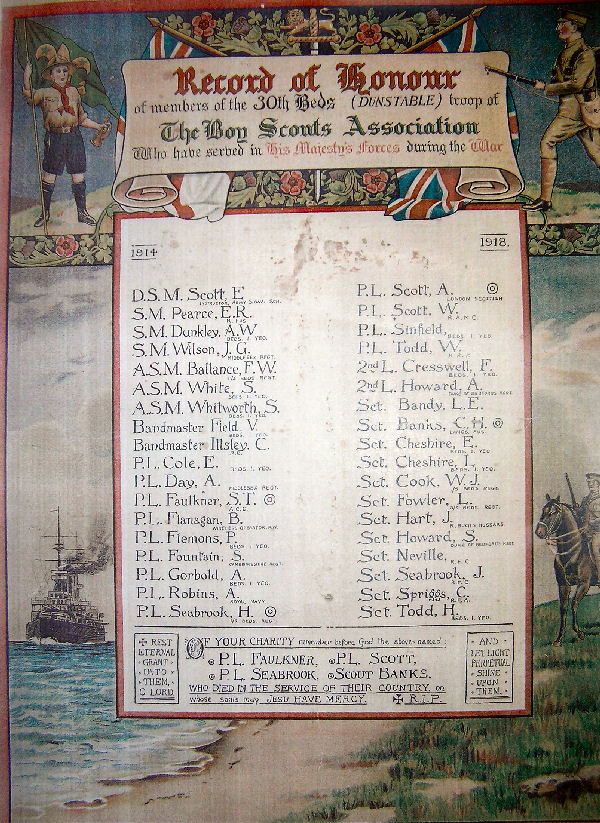 Record of Honour
of members of the 30th Beds (DUNSTABLE) troop of
The Boy Scouts Association
Who have served in His Majesty's Forces during the War
1914
D.S.M. Scott, E.
S.M. Pearce, E.R.
S.M. Dunkley, A.W
BEDS. I. YEO.
S.M. Wilson, J.G.
MIDDLESEX REGT.
A.S.M. Ballance, F.W.
A.S.M. White, S.
BEDS. I. YEO.
A.S.M. Whitworth, S.
BEDS. I. YEO.
Bandmaster Field, V.
Bandmaster Illsley, C.
P.L. Cole, E.
BEDS. I. YEO.
P.L. Day, A.
MIDDLESEX REGT.
P.L. Faulkner, S.T.
P.L. Flanagan, B.
P.L. Flemons, P.
BEDS. I. YEO.
P.L. Fountain, S.
P.L. Gorbold, A.
BEDS. I. YEO.
P.L. Robins, A.
ROYAL NAVY
P.L. Seabrook, H.
1918.
P.L. Scott, A.
LONDON SCOTTISH
P.L. Scott, W.
R.A.M.C.
P.L. Sinfield,
BEDS. I. YEO.
P.L. Todd, W.
2nd L. Cresswell, F.
BEDS. I. YEO.
2nd L. Howard, A.
Sct. Bandy, L.E.
Sct. Banks, C.H.
Sct. Cheshire, E.
BEDS. I. YEO.
Sct. Cheshire, L.
BEDS. I. YEO.
Sct. Cook, W.J.
Sct. Fowler, L.
Sct. Hart, J.
Sct. Howard, S.
Sct. Neville,
Sct. Seabrook, J.
Sct. Spriggs, C.
Sct. Todd, H.
BEDS. I. YEO.
✠ REST ETERNAL GRANT UNTO THEM, O LORD
OF YOUR CHARITY remember before God the above-named:
P.L. FAULKNER, P.L. SCOTT,
P.L. SEABROOK, SCOUT BANKS,
WHO DIED IN THE SERVICE OF THEIR COUNTRY, on
whose souls may JESU HAVE MERCY. ✠ R.I.P.
· AND · LET LIGHT PERPETUAL SHINE UPON THEM.